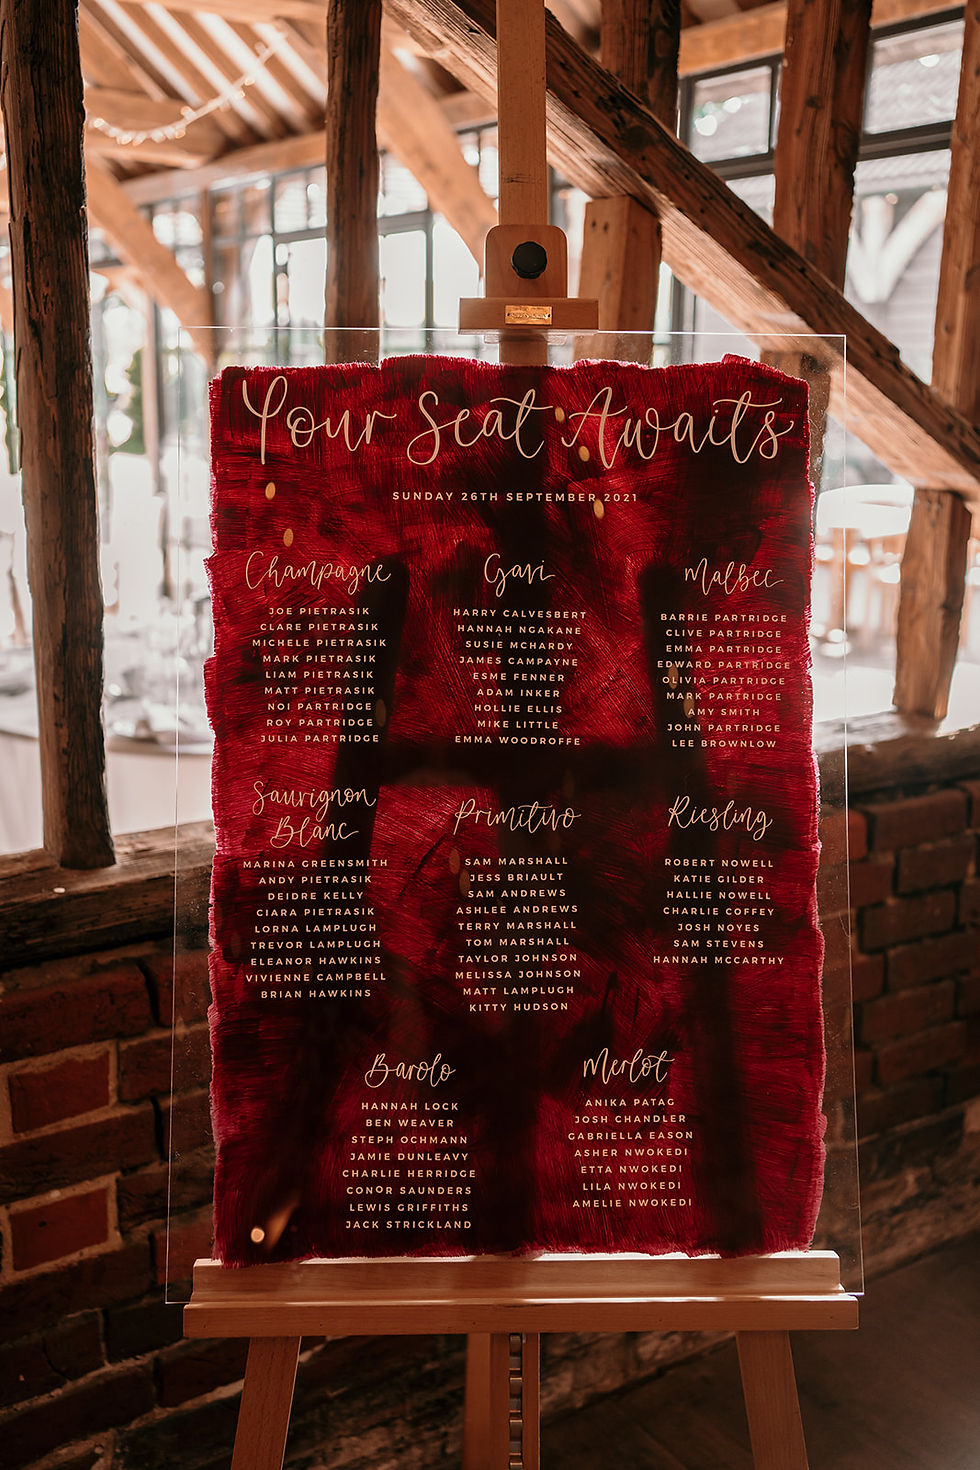 Your Seat Awaits
SUNDAY 26TH SEPTEMBER 2021
Champagne
JOE PIETRASIK
CLARE PIETRASIK
MICHELE PIETRASIK
MARK PIETRASIK
LIAM PIETRASIK
MATT PIETRASIK
NOI PARTRIDGE
ROY PARTRIDGE
JULIA PARTRIDGE
Gavi
HARRY CALVESBERT
HANNAH NGAKANE
SUSIE MCHARDY
JAMES CAMPAYNE
ESME FENNER
ADAM INKER
HOLLIE ELLIS
MIKE LITTLE
EMMA WOODROFFE
Malbec
BARRIE PARTRIDGE
CLIVE PARTRIDGE
EMMA PARTRIDGE
EDWARD PARTRIDGE
OLIVIA PARTRIDGE
MARK PARTRIDGE
AMY SMITH
JOHN PARTRIDGE
LEE BROWNLOW
Sauvignon
Blanc
MARINA GREENSMITH
ANDY PIETRASIK
DEIDRE KELLY
CIARA PIETRASIK
LORNA LAMPLUGH
TREVOR LAMPLUGH
ELEANOR HAWKINS
VIVIENNE CAMPBELL
BRIAN HAWKINS
Primitivo
SAM MARSHALL
JESS BRIAULT
SAM ANDREWS
ASHLEE ANDREWS
TERRY MARSHALL
TOM MARSHALL
TAYLOR JOHNSON
MELISSA JOHNSON
MATT LAMPLUGH
KITTY HUDSON
Riesling
ROBERT NOWELL
KATIE GILDER
HALLIE NOWELL
CHARLIE COFFEY
JOSH NOYES
SAM STEVENS
HANNAH MCCARTHY
Barolo
HANNAH LOCK
BEN WEAVER
STEPH OCHMANN
JAMIE DUNLEAVY
CHARLIE HERRIDGE
CONOR SAUNDERS
LEWIS GRIFFITHS
JACK STRICKLAND
Merlot
ANIKA PATAG
JOSH CHANDLER
GABRIELLA EASON
ASHER NWOKEDI
ETTA NWOKEDI
LILA NWOKEDI
AMELIE NWOKEDI